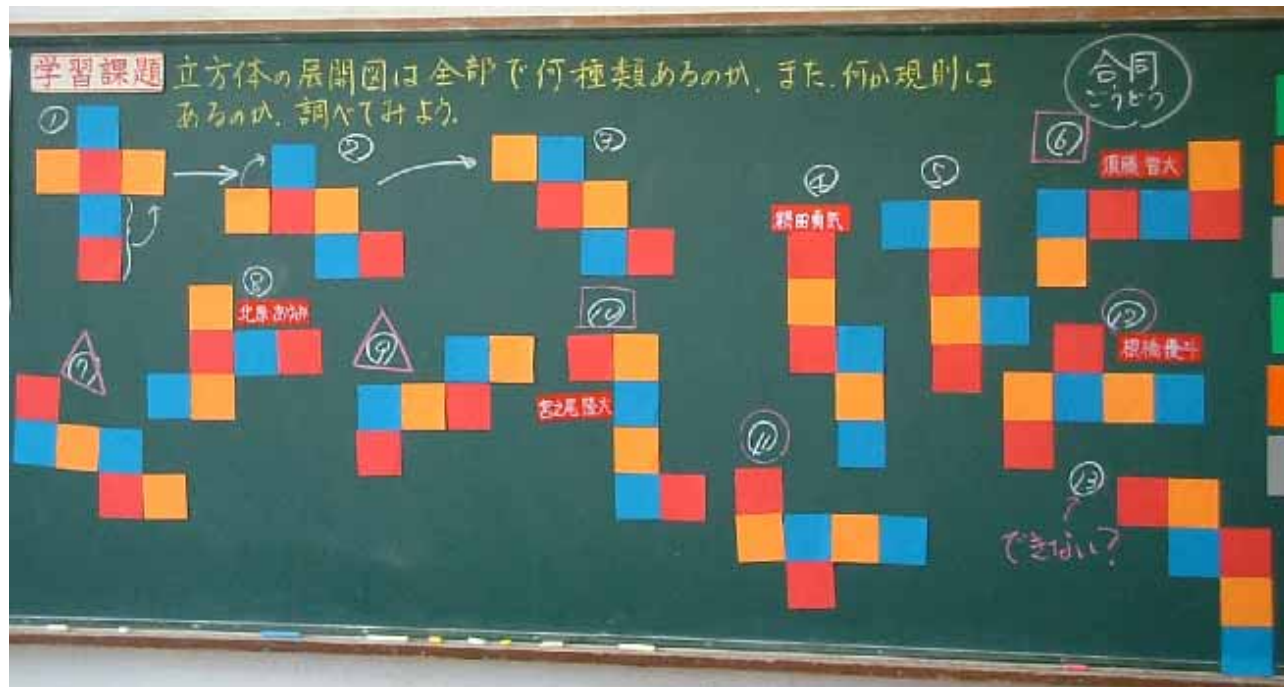 学習課題 立方体の展開図は全部で何種類あるのか、また、何か規則は
あるのか、調べてみよう。
合同
ごうどう
①
②
③
④
⑤
⑥
須藤 智大
⑦
⑧
⑨
⑩
宮之尾 隆大
⑪
⑫
根橋優斗
⑬
できない?